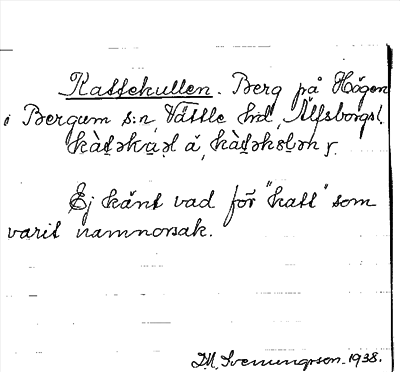 Kattekullen. Berg på Högen
i Bergum s:n, Vättle hd, Älfsborgsl.
Ej känt vad för "katt" som
varit namnorsak.
D.M. Svenungsson. 1938.